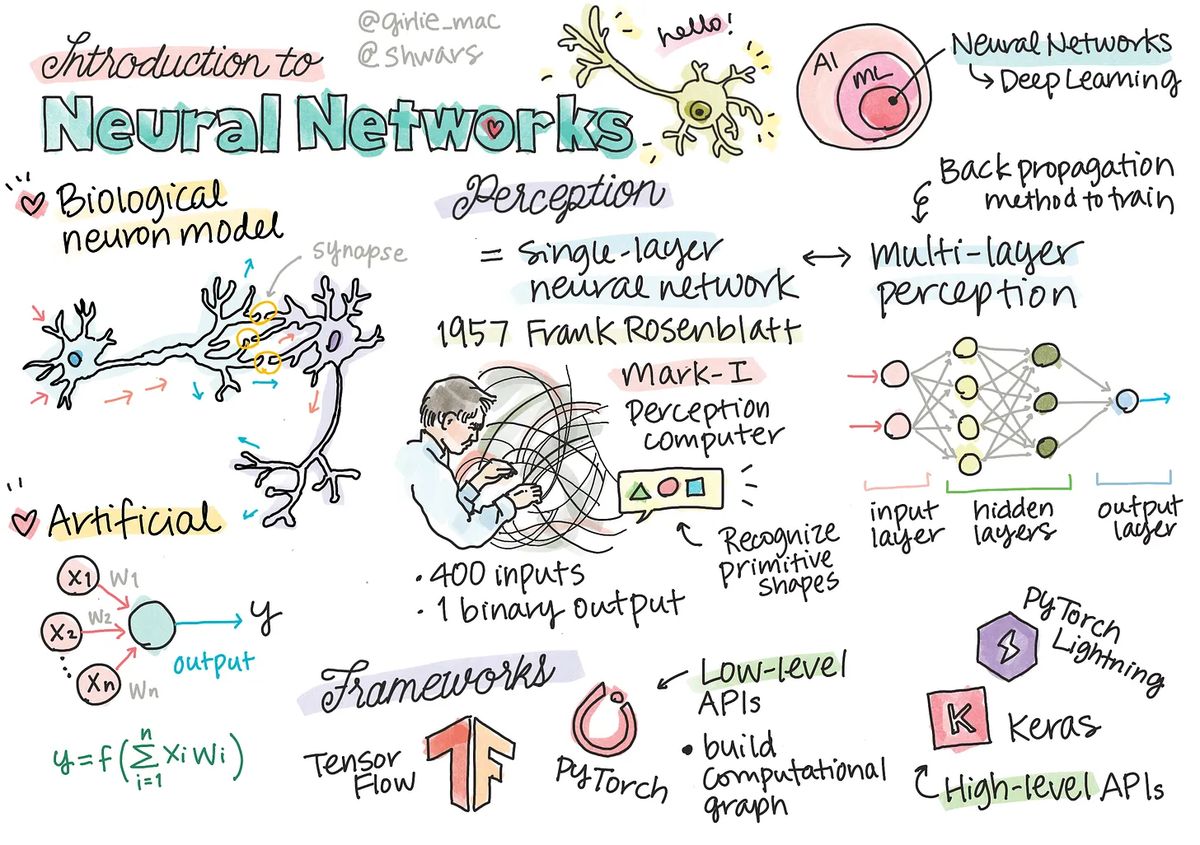 Introduction to
Neural Networks
@girlie_mac
@shwars
hello!
AI
ML
Neural Networks
↳ Deep Learning
Biological
neuron model
synapse
Perception
= single-layer
neural network
↔
multi-layer
perception
Back propagation
method to train
1957 Frank Rosenblatt
Mark-I
perception
computer
Recognize
primitive
shapes
• 400 inputs
• 1 binary output
input
layer
hidden
layers
output
layer
Artificial
X1
W1
X2
W2
Xn
Wn
y
output
y = f(∑ⁿᵢ₌₁ XiWi)
Frameworks
Tensor
Flow
PyTorch
Low-level
APIs
• build
computational
graph
PyTorch
Lightning
K
Keras
High-level APIs